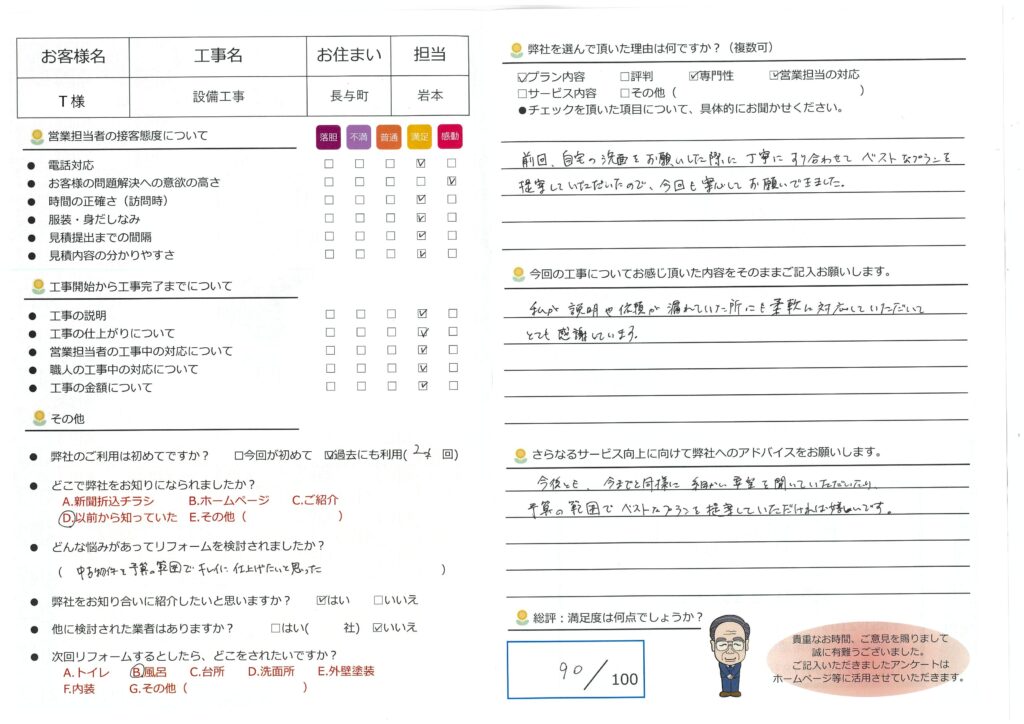 お客様名 工事名 お住まい 担当
T様 設備工事 長与町 岩本
営業担当者の接客態度について 落胆 不満 普通 満足 感動
● 電話対応 □ □ □ ☑ □
● お客様の問題解決への意欲の高さ □ □ □ □ ☑
● 時間の正確さ(訪問時) □ □ □ ☑ □
● 服装・身だしなみ □ □ □ ☑ □
● 見積提出までの間隔 □ □ □ ☑ □
● 見積内容の分かりやすさ □ □ □ ☑ □
工事開始から工事完了までについて
● 工事の説明 □ □ □ ☑ □
● 工事の仕上がりについて □ □ □ ☑ □
● 営業担当者の工事中の対応について □ □ □ ☑ □
● 職人の工事中の対応について □ □ □ ☑ □
● 工事の金額について □ □ □ ☑ □
その他
● 弊社のご利用は初めてですか? □今回が初めて ☑過去にも利用( 回)
● どこで弊社をお知りになられましたか?
A.新聞折込チラシ B.ホームページ C.ご紹介
D.以前から知っていた E.その他( )
● どんな悩みがあってリフォームを検討されましたか?
( 中古物件を予算の範囲でキレイに仕上げたいと思った )
● 弊社をお知り合いに紹介したいと思いますか? ☑はい □いいえ
● 他に検討された業者はありますか? □はい( 社) ☑いいえ
● 次回リフォームするとしたら、どこをされたいですか?
A.トイレ B.風呂 C.台所 D.洗面所 E.外壁塗装
F.内装 G.その他( )
弊社を選んで頂いた理由は何ですか?(複数可)
☑プラン内容 □評判 ☑専門性 ☑営業担当の対応
□サービス内容 □その他( )
●チェックを頂いた項目について、具体的にお聞かせください。
前回、自宅の洗面をお願いした際に丁寧にすり合わせてベストなプランを
提案していただいたので、今回も安心してお願いできました。
今回の工事についてお感じ頂いた内容をそのままご記入お願いします。
私が説明や依頼が漏れていた所にも柔軟に対応していただいて
とても感謝しています。
さらなるサービス向上に向けて弊社へのアドバイスをお願いします。
今後とも、今までと同様に細かい要望を聞いていただいたり、
予算の範囲でベストなプランを提案していただければ嬉しいです。
総評:満足度は何点でしょうか?
90/100
貴重なお時間、ご意見を賜りまして
誠に有難うございました。
ご記入いただきましたアンケートは
ホームページ等に活用させていただきます。